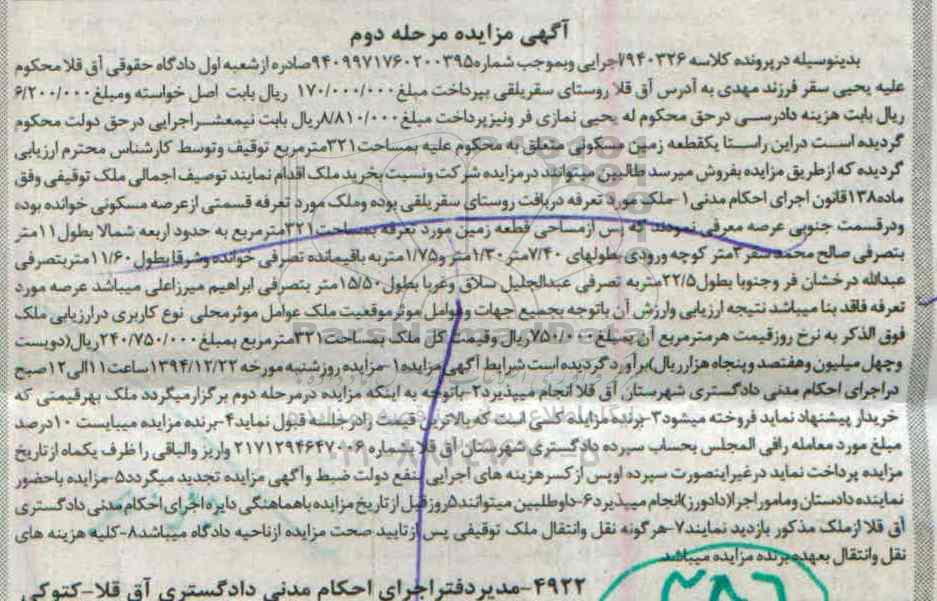 آگهی مزایده مرحله دوم
بدینوسیله درپرونده کلاسه ۷۹۴۰۳۲۶اجرایی وبموجب شماره۹۴۰۹۹۷۱۷۶۰۲۰۰۳۹۵صادره ازشعبه اول دادگاه حقوقی آق قلا محکوم
علیه یحیی سقر فرزند مهدی به آدرس آق قلا روستای سقریلقی بپرداخت مبلغ۱۷۰/۰۰۰/۰۰۰ ریال بابت اصل خواسته ومبلغ۶/۲۰۰/۰۰۰
ریال بابت هزینه دادرسی درحق محکوم له یحیی نمازی فر ونیزپرداخت مبلغ ۸/۸۱۰/۰۰۰ریال بابت نیمعشراجرایی درحق دولت محکوم
گردیده است دراین راستا یکقطعه زمین مسکونی متعلق به محکوم علیه بمساحت۳۲۱مترمربع توقیف وتوسط کارشناس محترم ارزیابی
گردیده که ازطریق مزایده بفروش میرسد طالبین میتوانند درمزایده شرکت ونسبت بخرید ملک اقدام نمایند توصیف اجمالی ملک توقیفی وفق
ماده۱۳۸قانون اجرای احکام مدنی۱-ملک مورد تعرفه دربافت روستای سقریلقی بوده وملک مورد تعرفه قسمتی ازعرصه مسکونی خوانده بوده
ودرقسمت جنوبی عرصه معرفی نمودند که پس ازمساحی قطعه زمین مورد تعرفه بمساحت۳۲۱مترمربع به حدود اربعه شمالا بطول۱۱متر
بتصرفی صالح محمد سقر۲متر کوچه ورودی بطولهای ۷/۴۰متر۱/۳۰متر و۱/۷۵متربه باقیمانده تصرفی خوانده وشرقابطول۱۱/۶۰متربتصرفی
عبدالله درخشان فر وجنوبا بطول۲۲/۵متربه تصرفی عبدالجلیل سلاق وغربا بطول۱۵/۵۰متر بتصرفی ابراهیم میرزاعلی میباشد عرصه مورد
تعرفه فاقد بنا میباشد نتیجه ارزیابی وارزش آن باتوجه بجمیع جهات وعوامل موثرموقعیت ملک عوامل موثرمحلی نوع کاربری درارزیابی ملک
فوق الذکر به نرخ روزقیمت هرمترمربع آن بمبلغ۷۵۰/۰۰۰ریال وقیمت کل ملک بمساحت۳۲۱مترمربع بمبلغ۲۴۰/۷۵۰/۰۰۰ریال(دویست
وچهل میلیون وهفتصد وپنجاه هزارریال)برآورد گردیده است شرایط آگهی مزایده۱-مزایده روزشنبه مورخه ۱۳۹۴/۱۲/۲۲ساعت۱۱الی۱۲صبح
دراجرای احکام مدنی دادگستری شهرستان آق قلا انجام میپذیرد۲-باتوجه به اینکه مزایده درمرحله دوم برگزارمیگردد ملک بهرقیمتی که
خریدار پیشنهاد نماید فروخته میشود۳-برنده مزایده کسی است که بالاترین قیمت رادرجلسه قبول نماید۴-برنده مزایده میبایست ۱۰درصد
مبلغ مورد معامله رافی المجلس بحساب سپرده دادگستری شهرستان آق قلا بشماره ۲۱۷۱۲۹۴۶۴۷۰۰۶ واریز والباقی را ظرف یکماه ازتاریخ
مزایده پرداخت نماید درغیراینصورت سپرده اوپس ازکسرهزینه های اجرایی بنفع دولت ضبط وآگهی مزایده تجدید میگردد۵-مزایده باحضور
نماینده دادستان وماموراجرا(دادورز)انجام میپذیرد۶-داوطلبین میتوانند۵روزقبل ازتاریخ مزایده باهماهنگی دایره اجرای احکام مدنی دادگستری
آق قلا ازملک مذکور بازدید نمایند۷-هرگونه نقل وانتقال ملک توقیفی پس ازتایید صحت مزایده ازناحیه دادگاه میباشد۸-کلیه هزینه های
نقل وانتقال بعهده برنده مزایده میباشد
۴۹۲۲-مدیردفتراجرای احکام مدنی دادگستری آق قلا-کتوکی
ParsNamadData